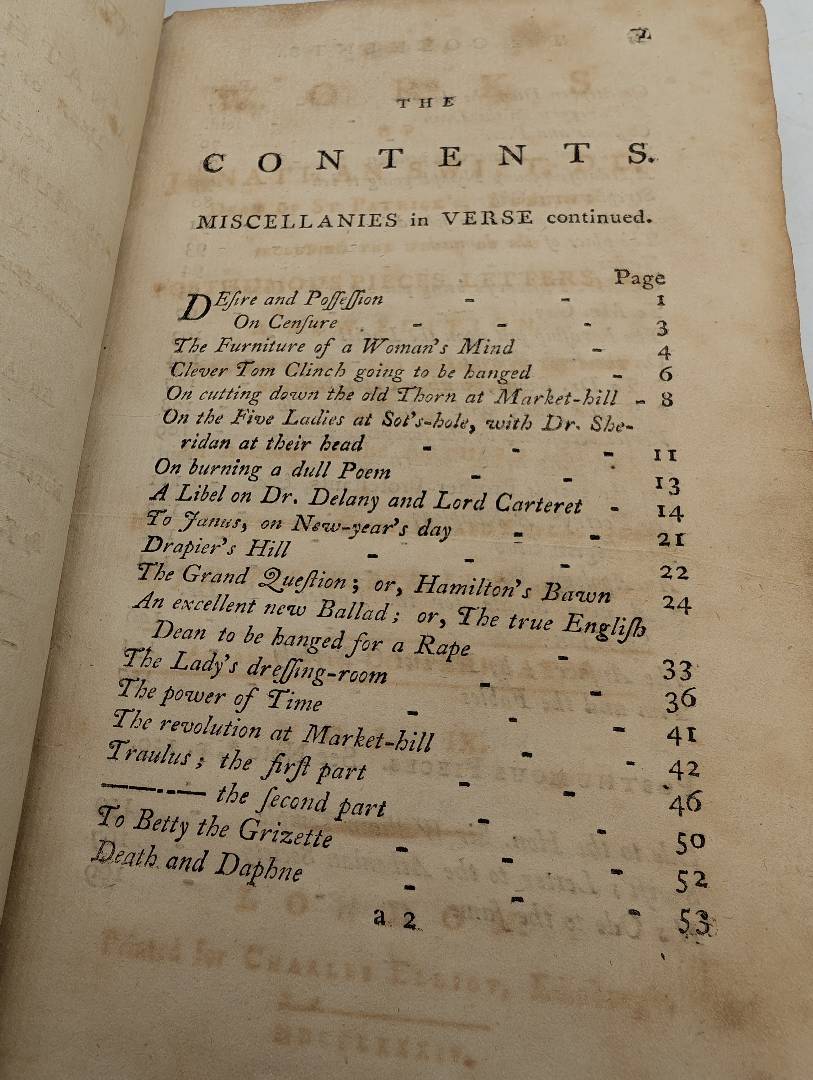 THE
CONTENTS.
MISCELLANIES in VERSE continued.
Page
DEſire and Poſſeſſion - - 1
On Cenſure - - - 3
The Furniture of a Woman's Mind - 4
Clever Tom Clinch going to be hanged - 6
On cutting down the old Thorn at Market-hill - 8
On the Five Ladies at Sot's-hole, with Dr. She-
ridan at their head - - - 11
On burning a dull Poem - - 13
A Libel on Dr. Delany and Lord Carteret - 14
To Janus, on New-year's day - - 21
Drapier's Hill - - - 22
The Grand Queſtion; or, Hamilton's Bawn 24
An excellent new Ballad; or, The true Engliſh
Dean to be hanged for a Rape - 33
The Lady's dreſſing-room - - 36
The power of Time - - - 41
The revolution at Market-hill - - 42
Traulus; the firſt part - - 46
——-— the ſecond part - - 50
To Betty the Grizette - - 52
Death and Daphne - - - 53
a 2
WORKS
LONDON
Printed for CHARLES ELLIOT, Edinburgh
MDCCLXXXIV.